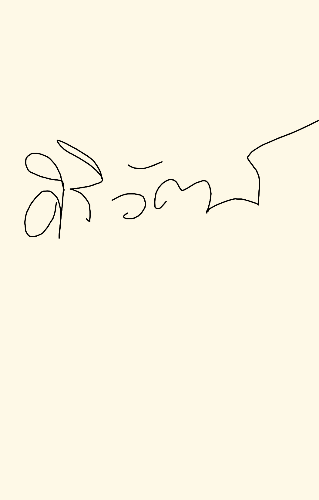 ศิริวัฒน์